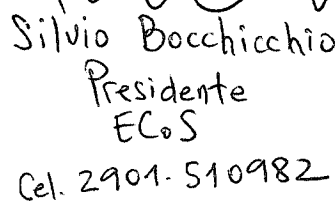 Silvio Bocchicchio
Presidente
ECoS
Cel. 2901. 510982